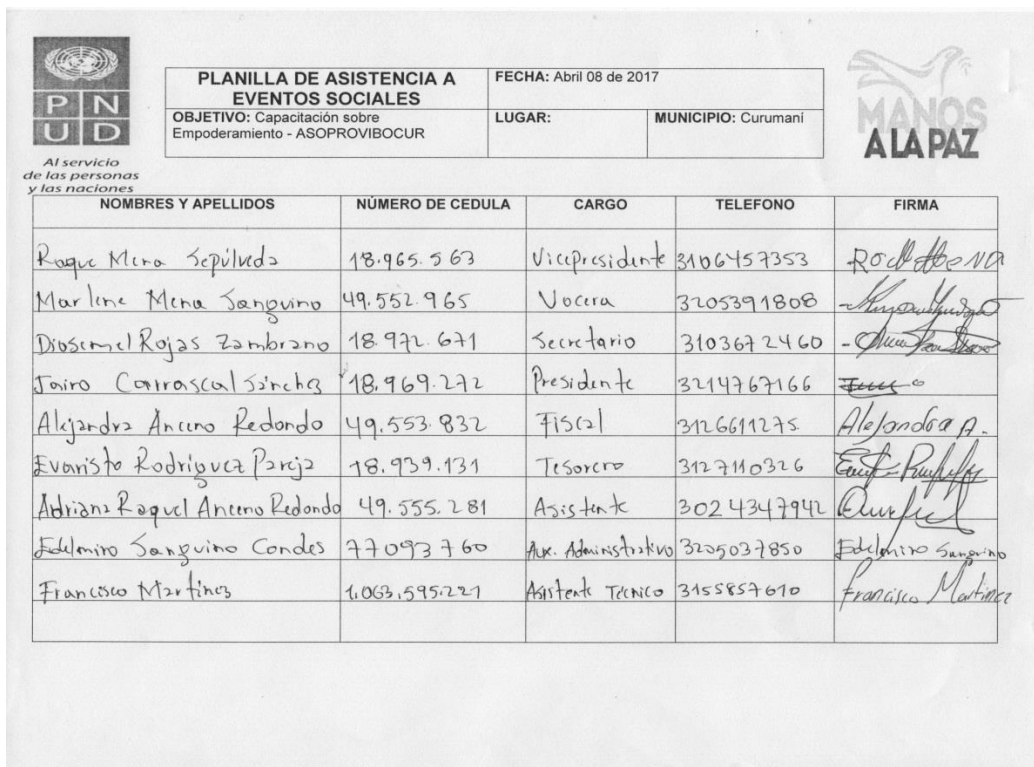 P N
U D
Al servicio
de las personas
y las naciones
PLANILLA DE ASISTENCIA A
EVENTOS SOCIALES
FECHA: Abril 08 de 2017
OBJETIVO: Capacitación sobre
Empoderamiento - ASOPROVIBOCUR
LUGAR:
MUNICIPIO: Curumaní
MANOS
A LA PAZ
NOMBRES Y APELLIDOS NÚMERO DE CEDULA CARGO TELEFONO FIRMA
Roque Mena Sepúlveda 18.965.563 Vicepresidente 3106457353
Marlene Mena Sanguino 49.552.965 Vocera 3205391808
Diosemel Rojas Zambrano 18.972.671 Secretario 3103672460
Jairo Carrascal Sánchez 18.969.272 Presidente 3214767166
Alejandra Anceno Redondo 49.553.832 Fiscal 3126611275 Alejandra A.
Evaristo Rodríguez Pareja 18.939.131 Tesorero 3127110326
Adriana Raquel Anceno Redondo 49.555.281 Asistente 3024347942
Edelmiro Sanguino Condes 77093760 Aux. Administrativo 3205037850 Edelmiro Sanguino
Francisco Martínez 1.063.595.221 Asistente Técnico 3155857610 Francisco Martínez